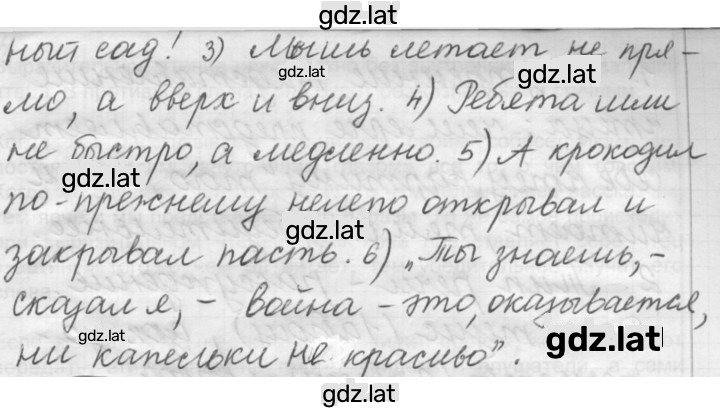 gdz.lat
ный сад! 3) Мышь летает не пря-
gdz.lat
gdz.lat
мо, а вверх и вниз. 4) Ребята шли
не быстро, а медленно. 5) А крокодил
gdz.lat
gdz.lat
по-прежнему нелепо открывал и
gdz.lat
закрывал пасть. 6) „Ты знаешь, -
сказал я, - война - это, оказывается,
gdz.lat
gdz.lat
ни капельки не красиво".
gdz.lat